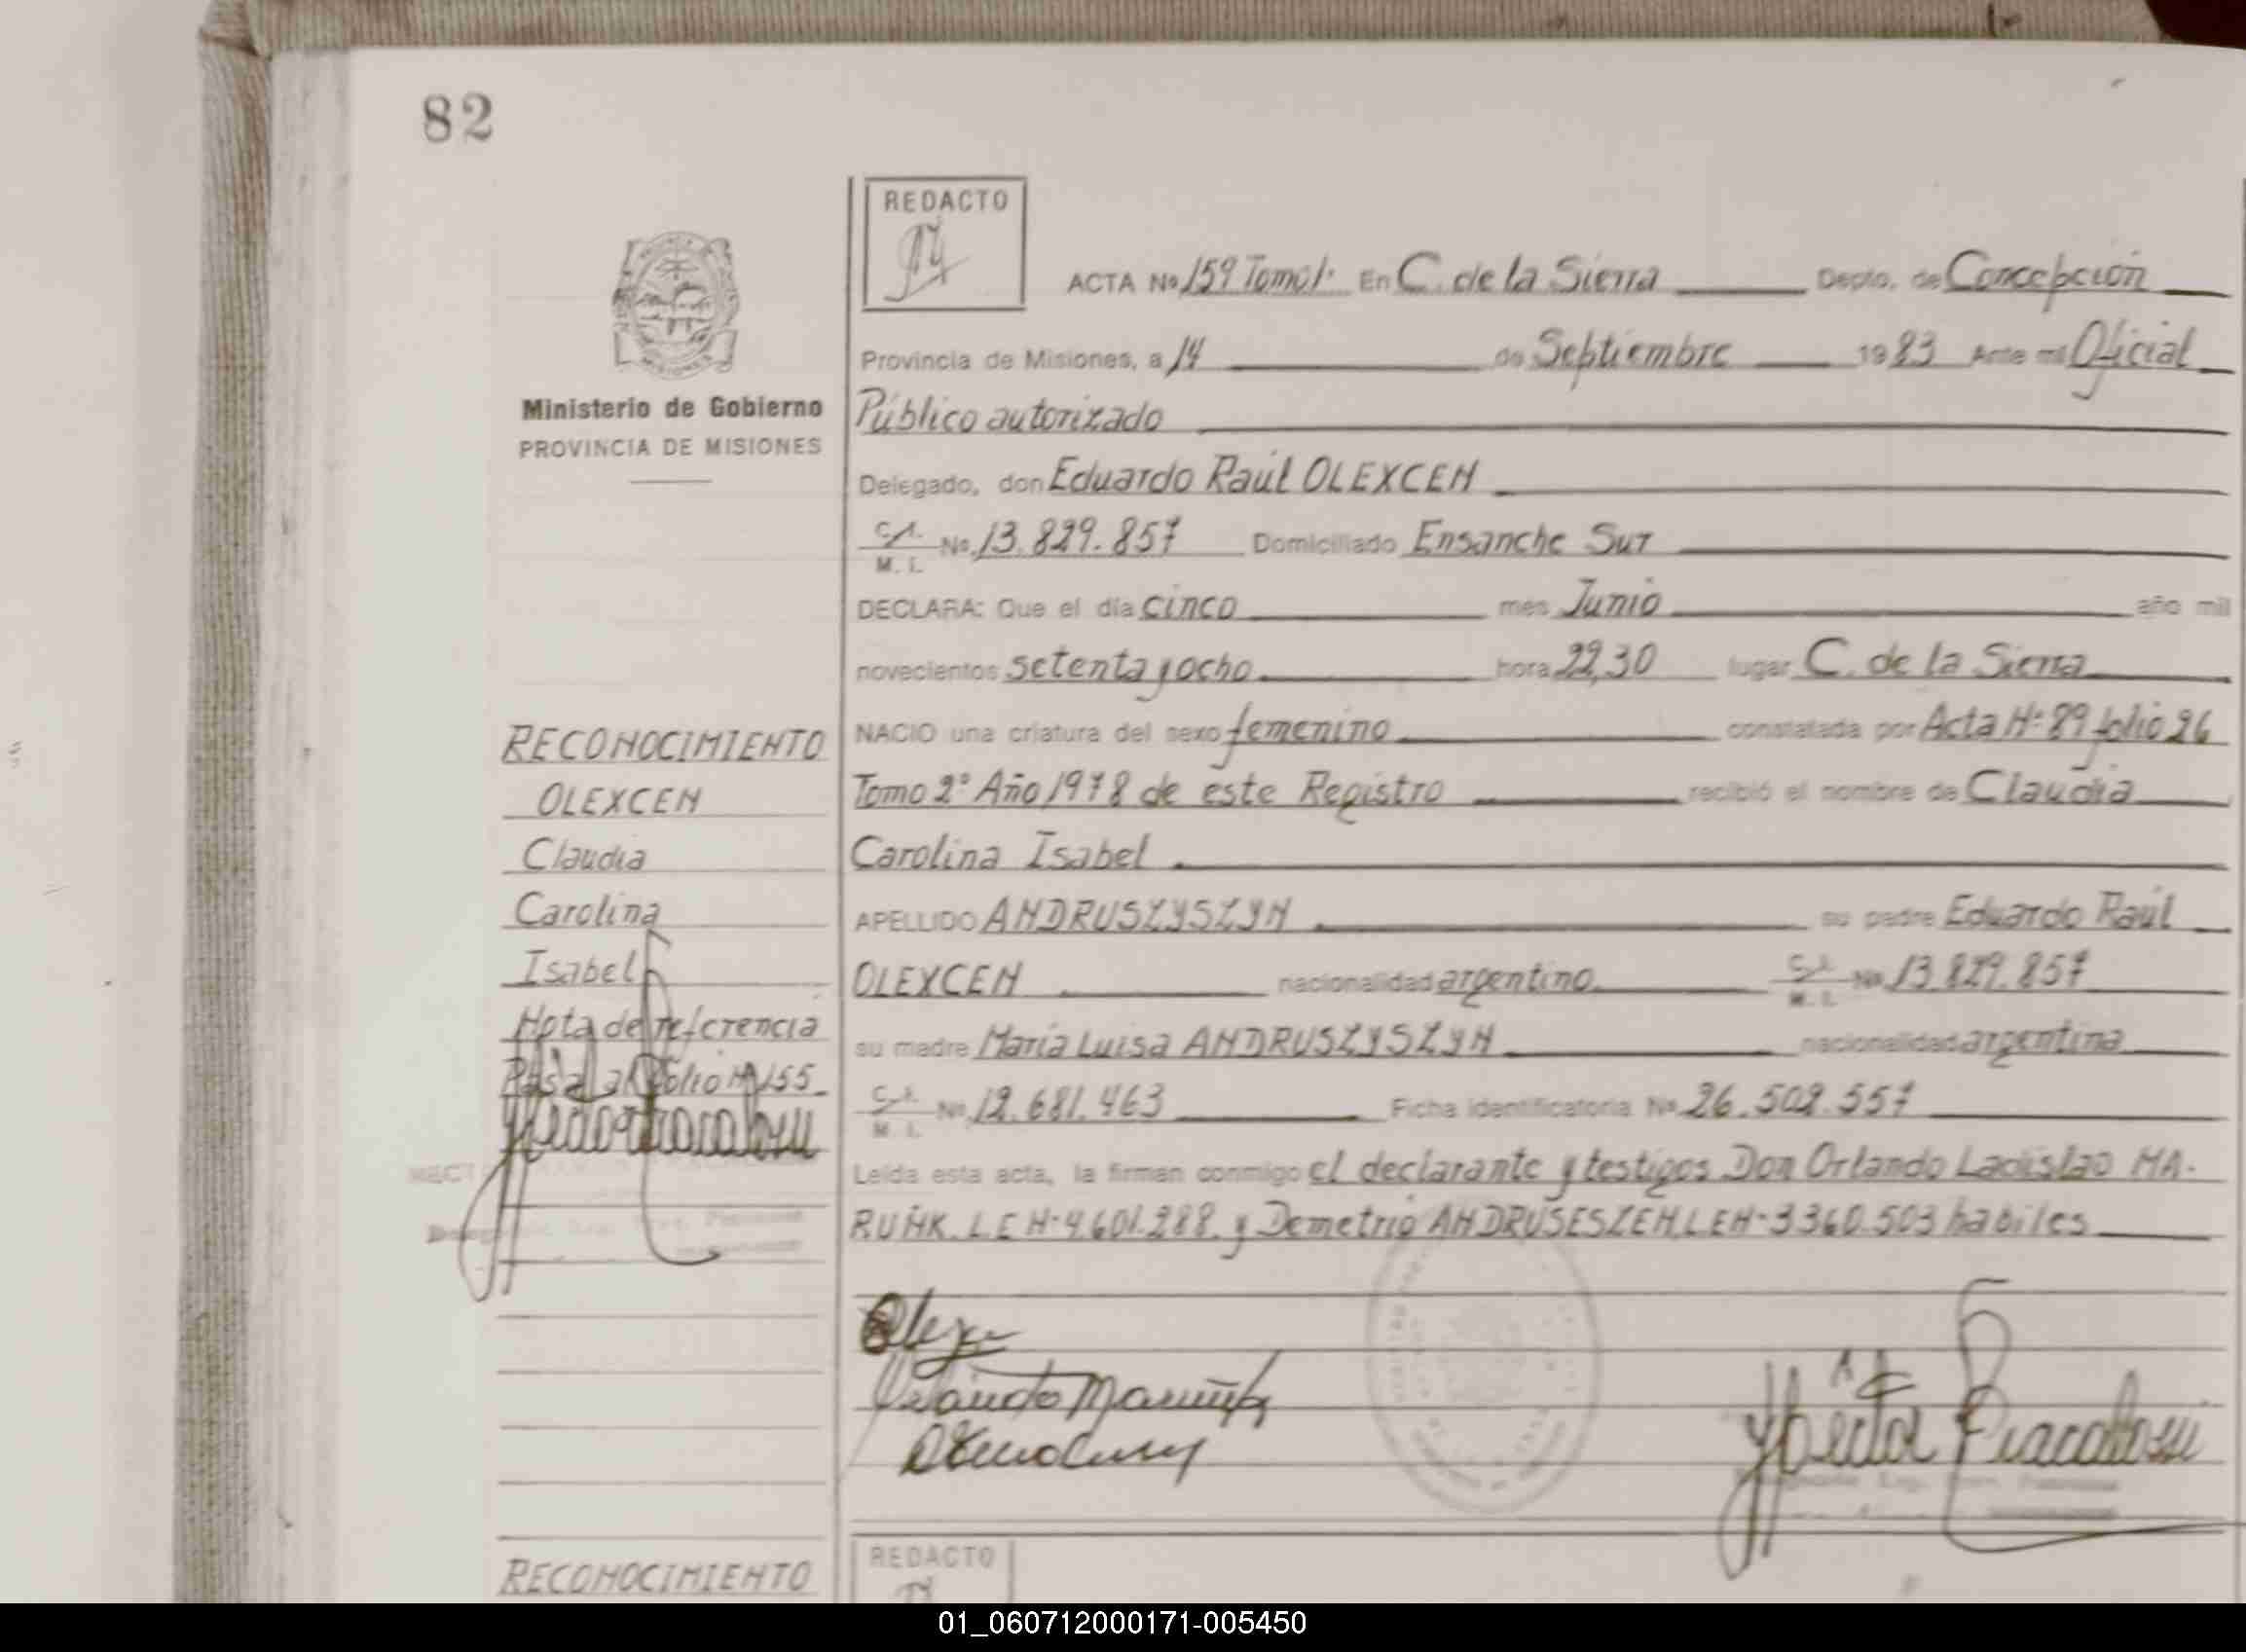 82
REDACTO
ACTA No 159 Tomo 1º En C. de la Sierra Depto. de Concepción
Provincia de Misiones, a 14 de Septiembre 1983 Ante mi Oficial
Ministerio de Gobierno
PROVINCIA DE MISIONES
Público autorizado
Delegado, don Eduardo Raúl OLEXCEN
C.I. M. I. No. 13.829.857 Domiciliado Ensanche Sur
DECLARA: Que el día cinco mes Junio año mil
novecientos setenta y ocho hora 22,30 lugar C. de la Sierra
NACIO una criatura del sexo femenino constatada por Acta Nº 89 folio 26
Tomo 2º Año 1978 de este Registro recibió el nombre de Claudia
Carolina Isabel
APELLIDO ANDRUSZYSZYN su padre Eduardo Raúl
OLEXCEN nacionalidad argentino C.I. M. I. No 13.829.857
su madre María Luisa ANDRUSZYSZYN nacionalidad argentina
C.I. M. I. No. 12.681.463 Ficha identificatoria No 26.502.557
Leída esta acta, la firman conmigo el declarante y testigos Don Orlando Ladislao MA-
RUÑK. L E Nº 4.601.288. y Demetrio ANDRUSESZEN. L E Nº 3360.503 habiles
RECONOCIMIENTO
OLEXCEN
Claudia
Carolina
Isabel
Nota de referencia
Pasa al folio Nº 155
RECONOCIMIENTO
REDACTO
01_060712000171-005450